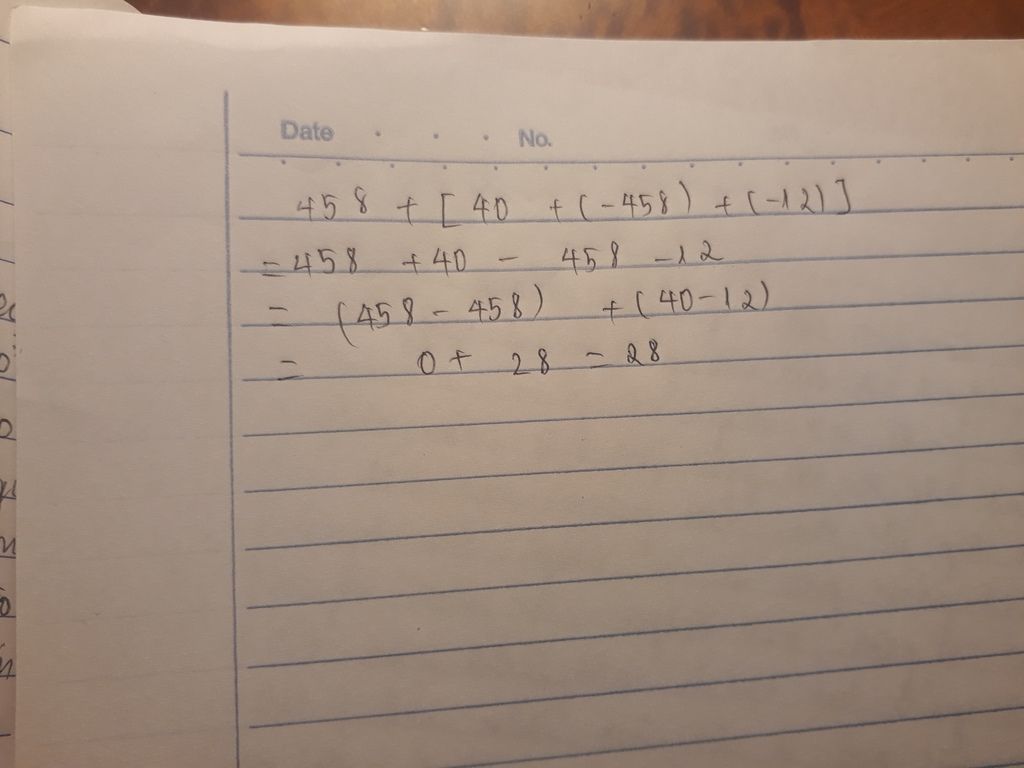 Date . . . No.
458 + [ 40 + (-458) + (-12) ]
= 458 + 40 - 458 - 12
= (458 - 458) + (40 - 12)
= 0 + 28 = 28